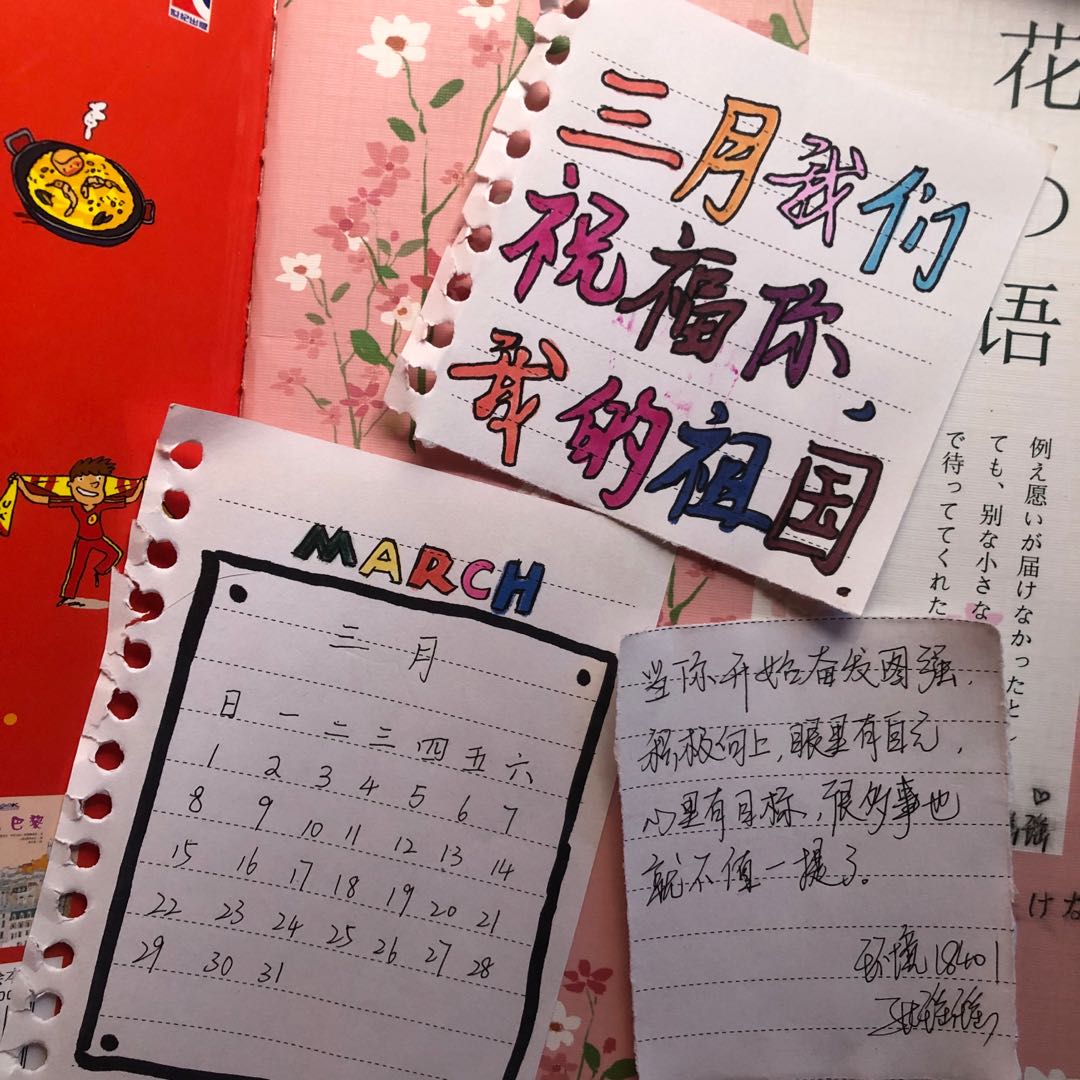 世纪出版
三月我们
祝福你，
我的祖国.
花の語
例え願いが届けなかったとし
ても、別な小さな
で待っててくれた
MARCH
三月
日 一 二 三 四 五 六
1 2 3 4 5 6 7
8 9 10 11 12 13 14
15 16 17 18 19 20 21
22 23 24 25 26 27 28
29 30 31
当你开始奋发图强，
积极向上，眼里有自己，
心里有目标，很多事也
就不值一提了。
环境18401
けな
巴黎